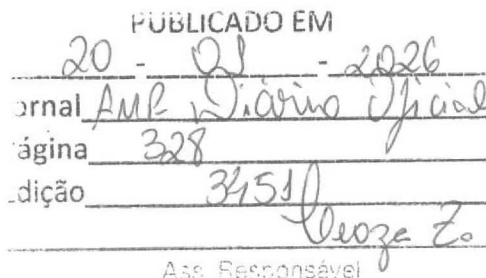 PUBLICADO EM
20 - 01 - 2026
ornal AMP Diário Oficial
ágina 328
dição 3451
Ass. Responsável